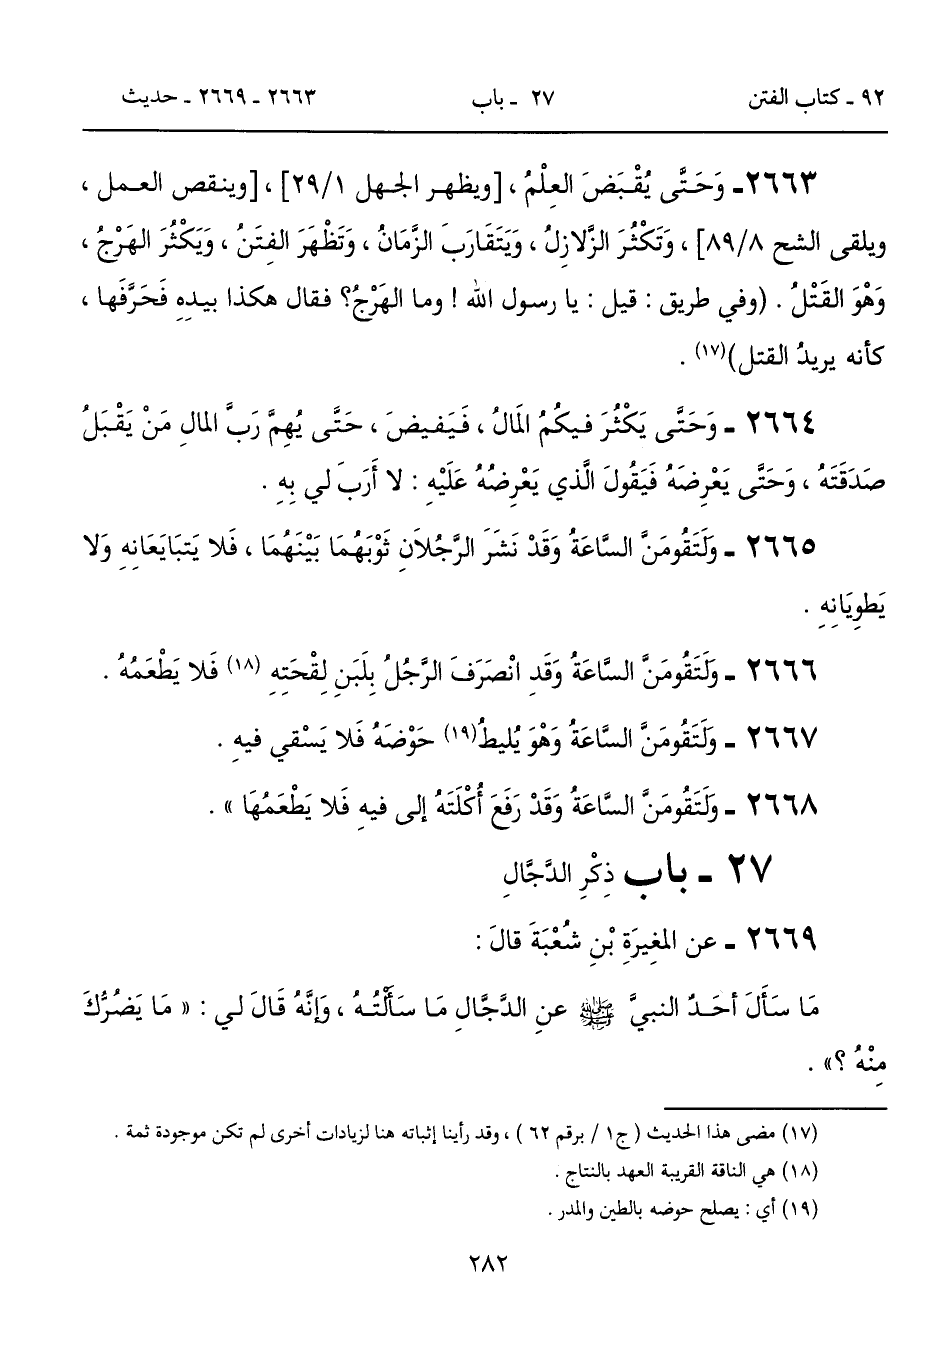 ٩٢ ـ كتاب الفتن ٢٧ ـ باب ٢٦٦٣ ـ ٢٦٦٩ ـ حديث
٢٦٦٣ـ وَحَتَّى يُقْبَضَ العِلْمُ ، [ويظهر الجهل ٢٩/١] ، [وينقص العمل ،
ويلقى الشح ٨٩/٨] ، وَتَكْثُرَ الزَّلازِلُ ، وَيَتَقَارَبَ الزَّمَانُ ، وَتَظْهَرَ الفِتَنُ ، وَيَكْثُرَ الهَرْجُ ،
وَهْوَ القَتْلُ . (وفي طريق : قيل : يا رسول الله ! وما الهَرْجُ؟ فقال هكذا بيدهِ فَحَرَّفَها ،
كأنه يريدُ القتل)(١٧) .
٢٦٦٤ ـ وَحَتَّى يَكْثُرَ فيكُمُ المَالُ ، فَيَفيضَ ، حَتَّى يُهِمَّ رَبَّ المالِ مَنْ يَقْبَلُ
صَدَقَتَهُ ، وَحَتَّى يَعْرِضَهُ فَيَقُولَ الَّذي يَعْرِضُهُ عَلَيْهِ : لا أَرَبَ لي بِهِ .
٢٦٦٥ ـ وَلَتَقُومَنَّ السَّاعَةُ وَقَدْ نَشَرَ الرَّجُلاَنِ ثَوْبَهُمَا بَيْنَهُمَا ، فَلا يَتَبَايَعَانِهِ وَلا
يَطوِيَانِهِ .
٢٦٦٦ ـ وَلَتَقُومَنَّ السَّاعَةُ وَقَدِ انْصَرَفَ الرَّجُلُ بِلَبَنِ لِقْحَتِهِ (١٨) فَلا يَطْعَمُهُ .
٢٦٦٧ ـ وَلَتَقُومَنَّ السَّاعَةُ وَهْوَ يُليطُ(١٩) حَوْضَهُ فَلا يَسْقي فيهِ .
٢٦٦٨ ـ وَلَتَقُومَنَّ السَّاعَةُ وَقَدْ رَفَعَ أُكْلَتَهُ إلى فيهِ فَلا يَطْعَمُهَا » .
٢٧ ـ باب ذِكْرِ الدَّجَّالِ
٢٦٦٩ ـ عن المغِيرَةِ بْنِ شُعْبَةَ قالَ :
مَا سَأَلَ أحَدٌ النبيَّ ﷺ عنِ الدَّجَّالِ مَا سَأَلْتُهُ ، وَإنَّهُ قَالَ لي : « مَا يَضُرُّكَ
مِنْهُ ؟» .
(١٧) مضى هذا الحديث ( ج١ / برقم ٦٢ ) ، وقد رأينا إثباته هنا لزيادات أخرى لم تكن موجودة ثمة .
(١٨) هي الناقة القريبة العهد بالنتاج .
(١٩) أي : يصلح حوضه بالطين والمدر .
٢٨٢